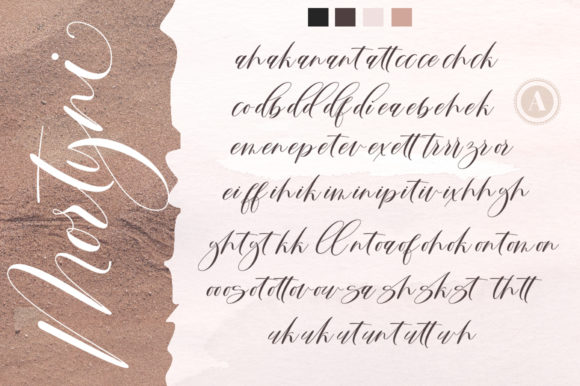 Mortyni
ahakanant attcoce chck
A
codbdddfdieaebehek
emenepetevexett trrrzr or
eiffihikiminipitivixhhgh
ghtgtkk llntoaofohokontomon
ooosotottovowsa shskst thtt